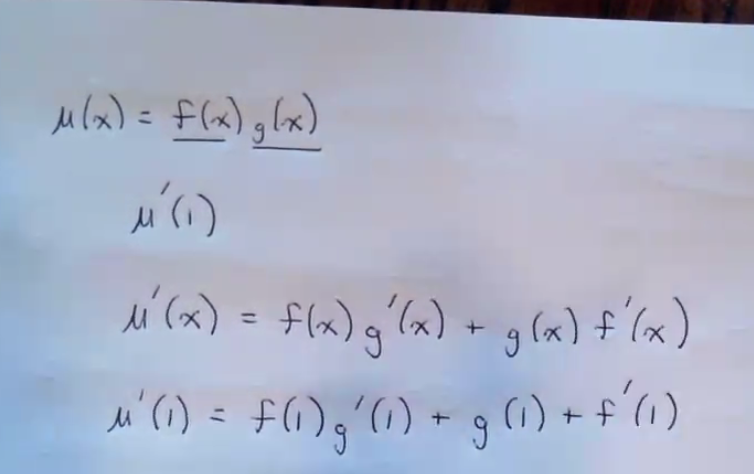 μ(x) = f(x) g(x)
μ'(1)
μ'(x) = f(x) g'(x) + g(x) f'(x)
μ'(1) = f(1) g'(1) + g(1) + f'(1)